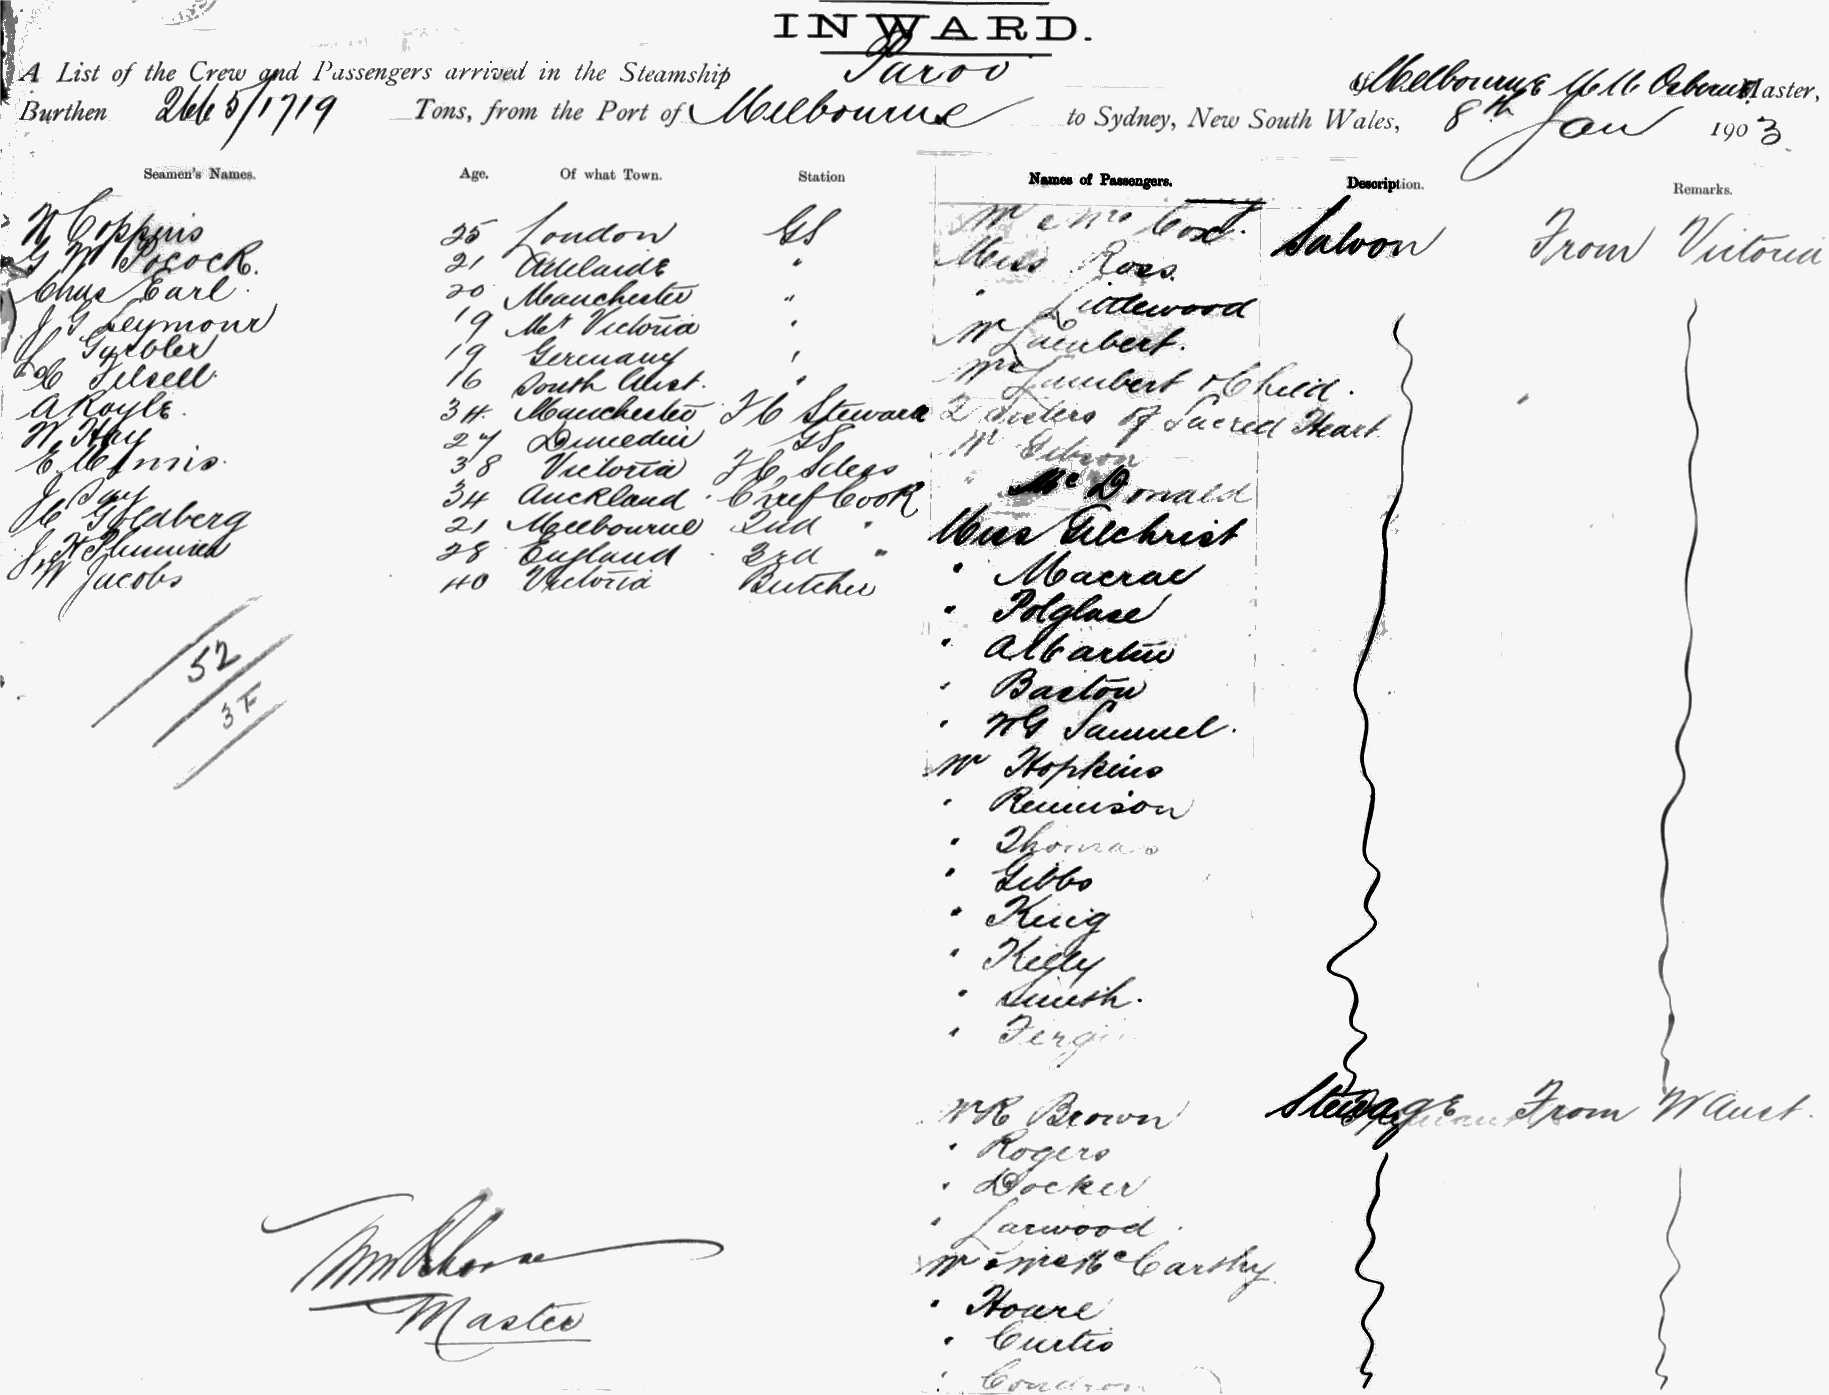 INWARD.
A List of the Crew and Passengers arrived in the Steamship Paroo of Melbourne Master,
Burthen 2665/1719 Tons, from the Port of Melbourne to Sydney, New South Wales, 8th Jan 1903
Seamen's Names. Age. Of what Town. Station Names of Passengers. Description. Remarks.
W Coppins 25 London GS
G W Pocock. 21 Adelaide "
Chas Earl. 20 Manchester "
J G Seymour 19 Mt Victoria "
19 Germany "
16 South Aust. "
A Royle. 34. Manchester Steward
W Hay 27 Dunedin GS
38 Victoria
J Guy 34 Auckland. Chief Cook
H Goldberg 21 Melbourne 2nd "
J H Plummer 28 England. 3rd "
W Jacobs 40 Victoria Butcher
52
Master
Mr & Mrs Cox. Saloon From Victoria
Miss Ross.
" Littlewood
Mr Lambert.
Mrs Lambert & Child.
2 Sisters of Sacred Heart
Mr Gibson
" McDonald
Miss Gilchrist
" Macrae
" Polglase
" A Martin
" Barton
" W G Samuel.
Mr Hopkins
" Rennison
" Thomas
" Gibbs
" King
" Kelly
" Smith.
"
Mr R Brown Steerage From W Aust.
" Rogers
" Docker
" Larwood.
Mr & Mrs McCarthy
" Hoare
" Curtis
" Condron